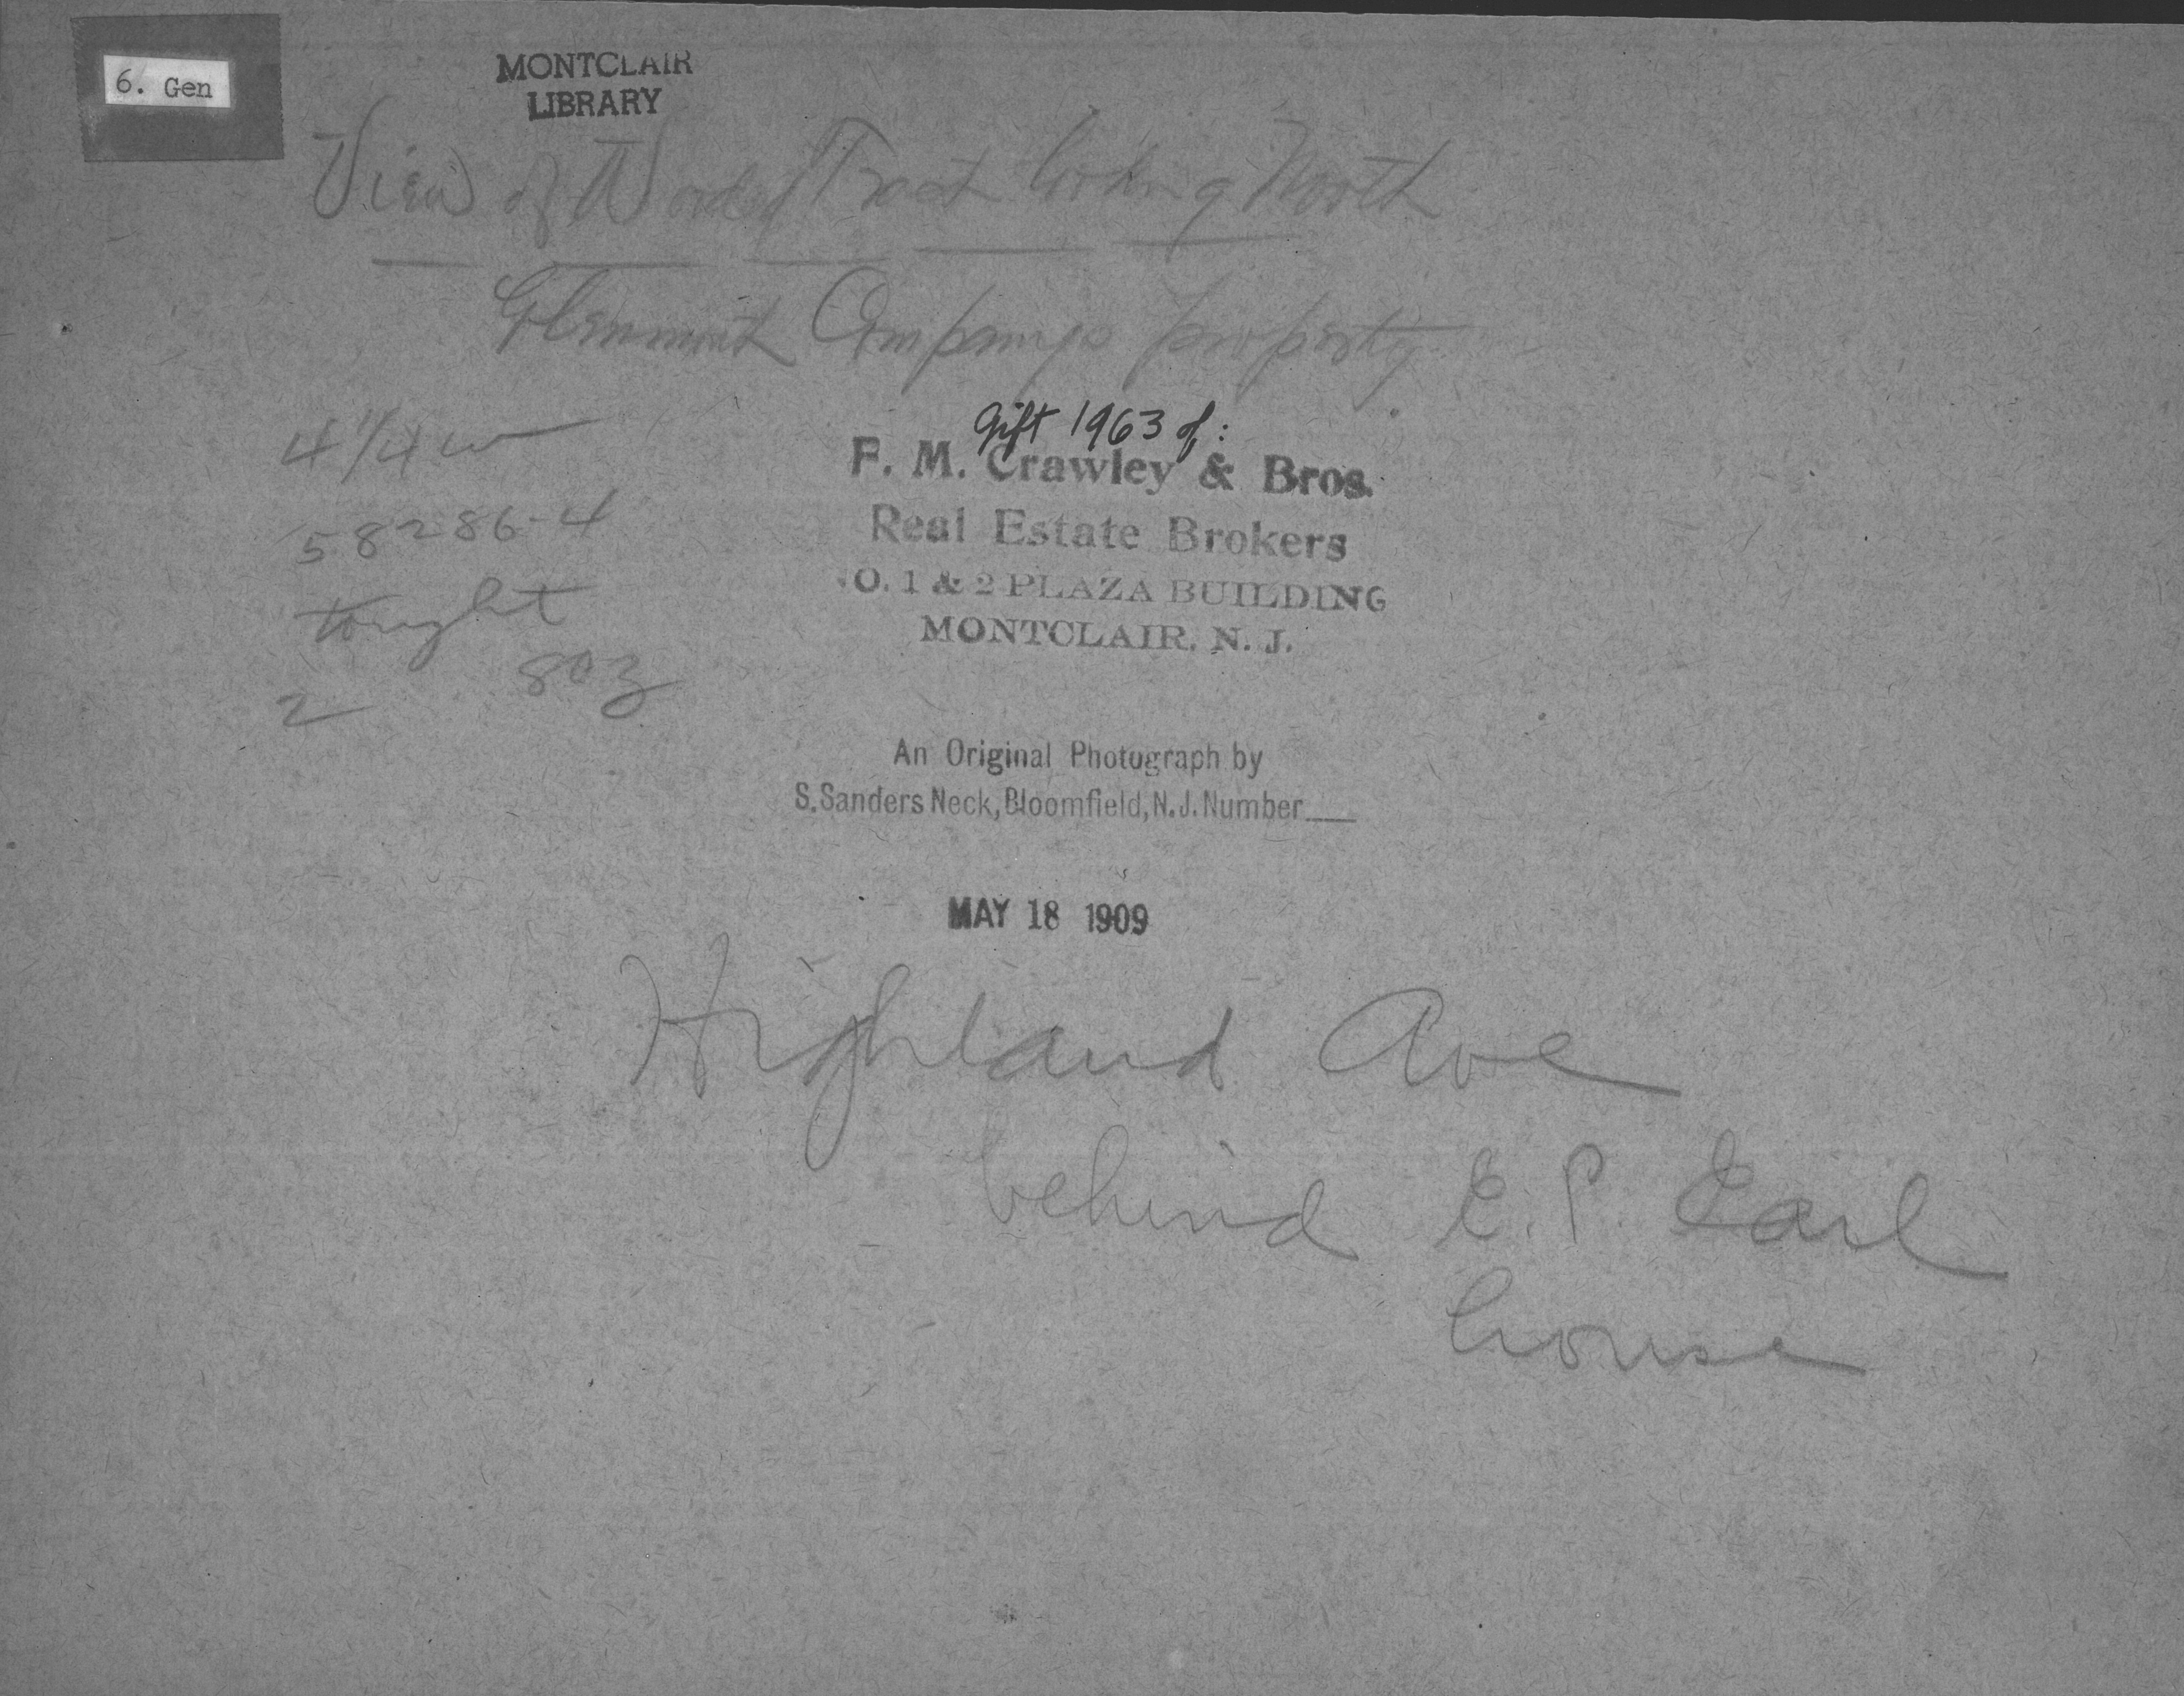 6. Gen
MONTCLAIR
LIBRARY
View of Wooded Tract looking North
Glenmont Companys property
4 1/4 w
58286-4
tonight
2 803
Gift 1963 of:
F. M. Crawley & Bros.
Real Estate Brokers
NO. 1 & 2 PLAZA BUILDING
MONTCLAIR, N. J.
An Original Photograph by
S. Sanders Neck, Bloomfield, N.J. Number
MAY 18 1909
Highland Ave
behind E. P. Earl
house